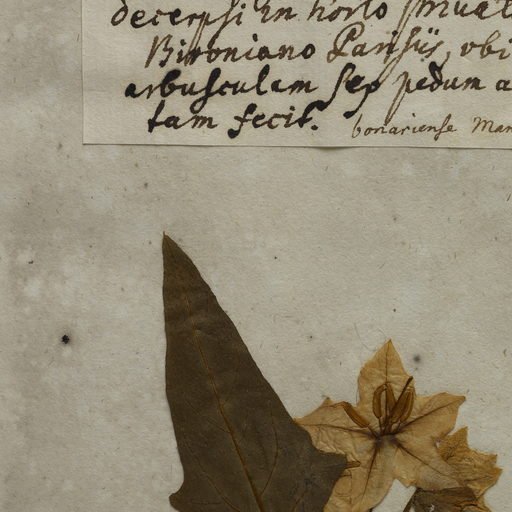 decerpsi in horto privat
Bironiano Parisijs, ubi
arbusculam sex pedum a
tam fecit. bonariense Man